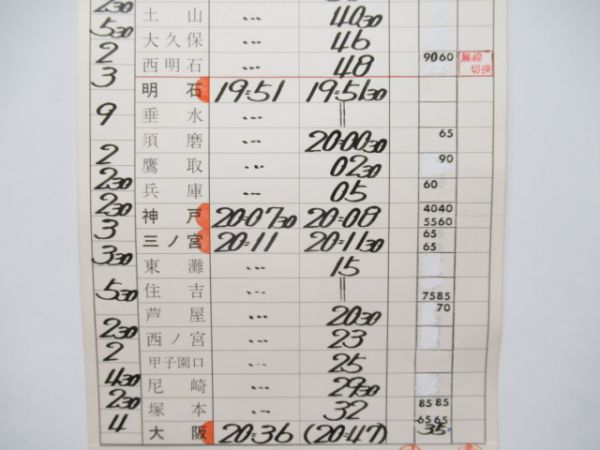 230 土山 … 40 30
530 大久保 … 46
2 西明石 … 48 9060 無線切換
3 明石 19=51 19=51 30
垂水 … ||
9 須磨 … 20=00 30 65
2 鷹取 … 02 30 90
230 兵庫 … 05 60
230 神戸 20=07 30 20=08 4040 5560
3 三ノ宮 20=11 20=11 30 65 65
330 東灘 … 15
住吉 … || 7585
530 芦屋 … 20 30 70
230 西ノ宮 … 23
2 甲子園口 … 25
430 尼崎 … 29 30
230 塚本 … 32 8585
4 大阪 20=36 (20=47) 6565 35